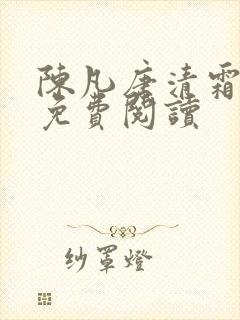 陳凡唐清霜
免費閱讀
紗罩燈